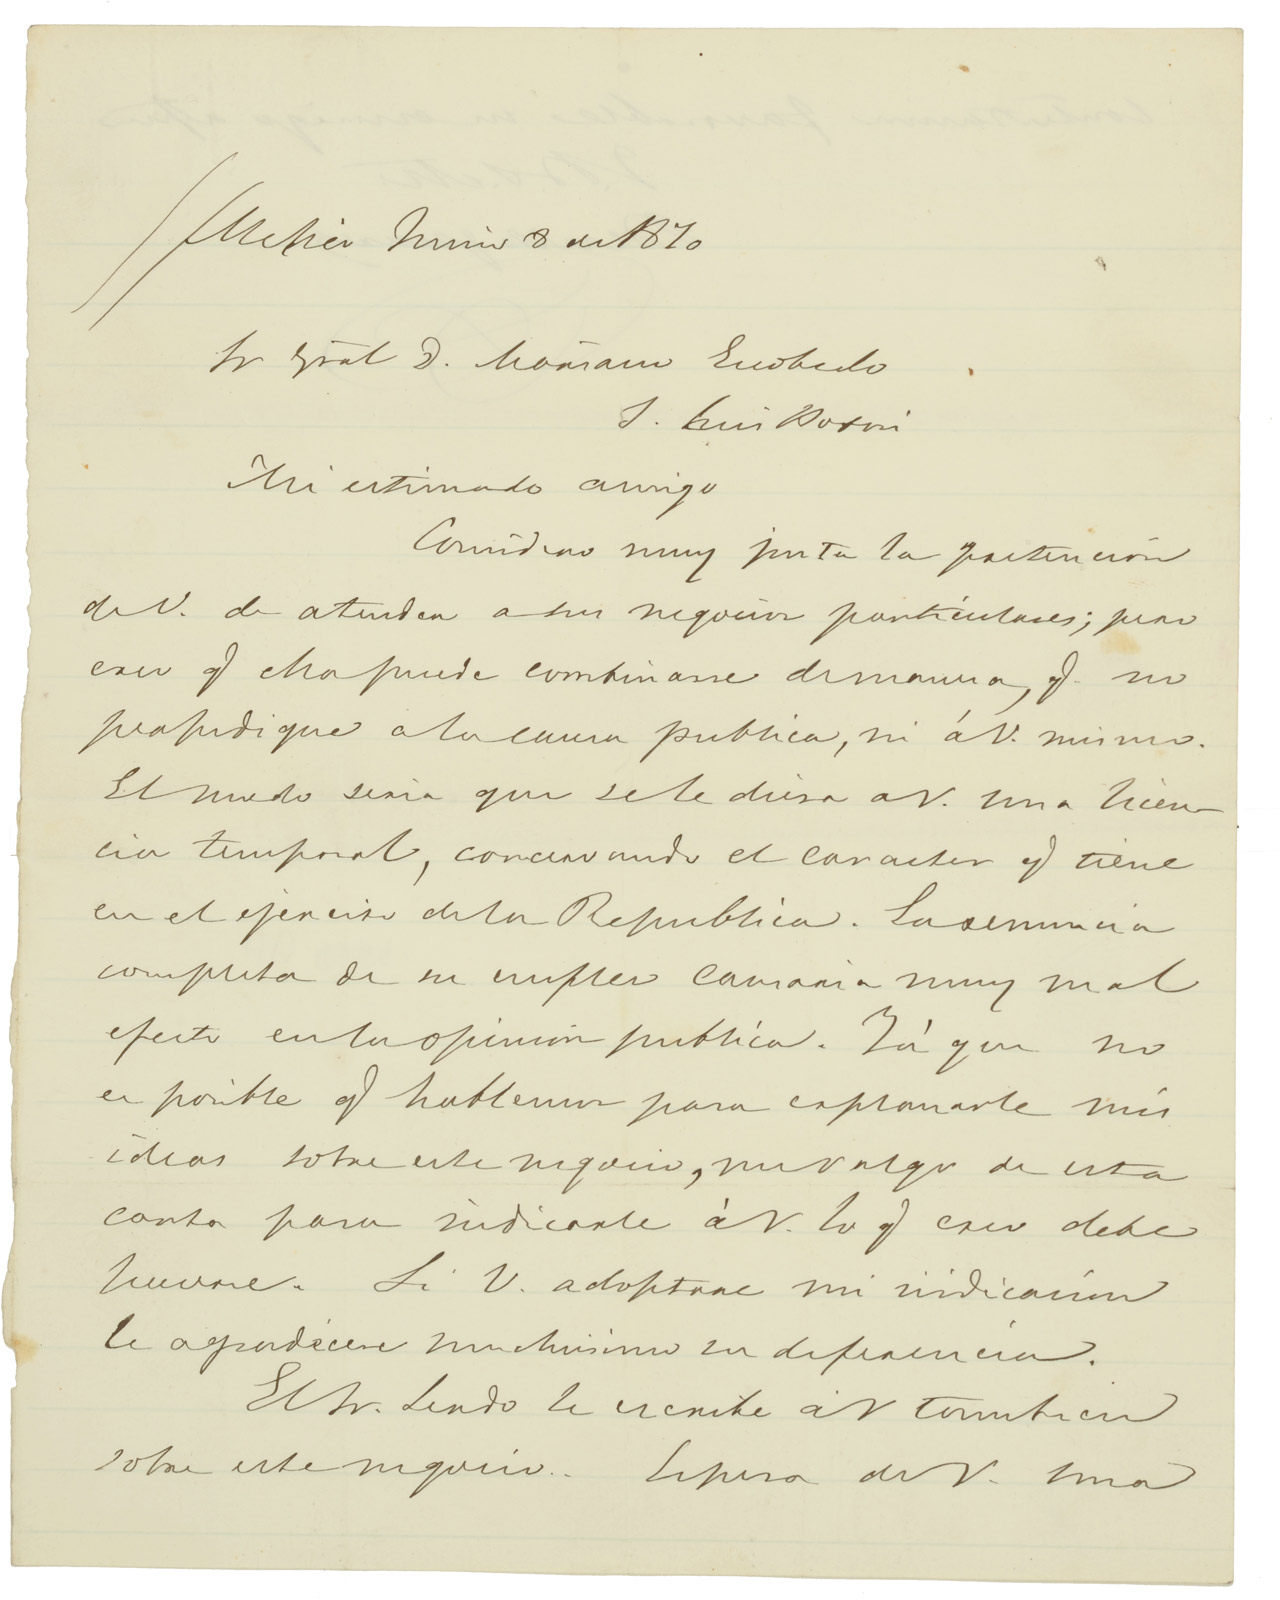 Mexico Junio 8 de 1870
Sr Gral D. Mariano Escobedo
S. Luis Potosi
Mi estimado amigo
Considero muy justa la pretencion
de V. de atender a sus negocios particulares; pero
creo q. ella puede combinarse de manera, q. no
perjudique a la causa publica, ni á V. mismo.
El modo seria que se le diera a V. una licen-
cia temporal, concervando el caracter q. tiene
en el ejercito de la Republica. La renuncia
completa de su empleo causaria muy mal
efecto en la opinion publica. Yá que no
es posible q. hablemos para esplanarle mis
ideas sobre este negocio, me valgo de esta
carta para indicarle á V. lo q. creo debe
hacerse. Si V. adoptare mi indicacion
le agradécere muchisimo su deferencia.
El Sr. Lerdo le escribe á V tambien
sobre este negocio. Espera de V. una